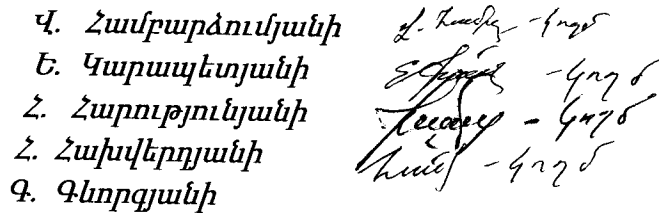 Վ. Համբարձումյանի - կողմ
Ե. Կարապետյանի - կողմ
Հ. Հարությունյանի - կողմ
Հ. Հախվերդյանի - կողմ
Գ. Գևորգյանի